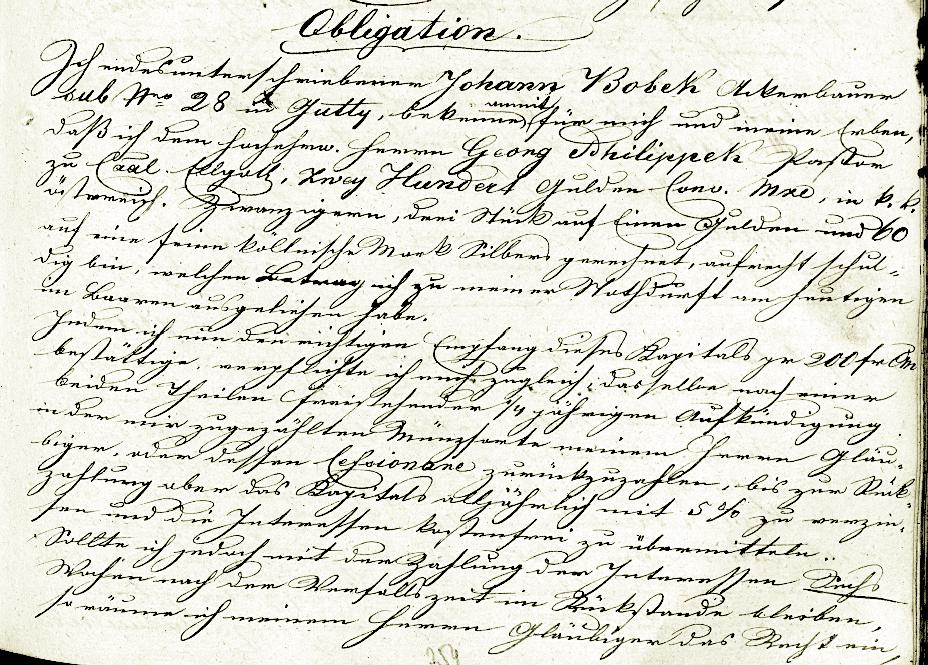 Obligation.
Ich endesunterschriebener Johann Bobek Ackerbauer
sub Nro 28 in Gutty, bekenne anmit für mich und meine Erben,
daß ich dem hochehrw. Herrn Georg Philippek Pastor
zu Caal. Ellgott, Zwey Hundert Gulden Conv. Mze, in k. k.
östreich. Zwanzigern, drei Stück auf Einen Gulden und 60
auf eine feine kollnische Mark Silbers gerechnet, aufrecht schul-
dig bin, welchen Betrag ich zu meiner Nothdurft am heutigen
im Baaren ausgeliehen habe.
Indem ich nun den richtigen Empfang dieses Kapitals pr 200 fr
bestättige, verpflichte ich mich zugleich, dasselbe nach einer
beiden Theilen freistehender 1/4 jährigen Aufkündigung
in der mir zugezählten Münzsorte meinem Herrn Gläu-
biger, oder dessen Cessionäre zurückzuzahlen, bis zur Rück-
zahlung aber das Kapitals alljährlich mit 5 % zu verzin-
sen und die Interessen kostenfrei zu übermitteln.
Sollte ich jedoch mit der Zahlung der Interessen Sechs
Wochen nach der Verfallszeit im Rückstande bleiben,
so räume ich meinem Herrn Gläubiger das Recht ein,